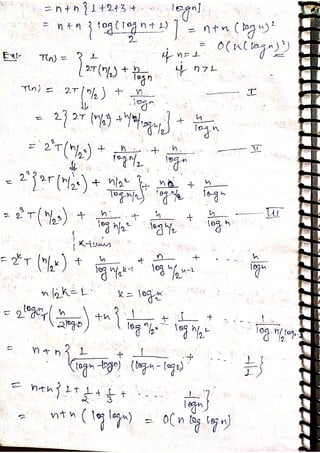 = n + n { 1 + 2 + 3 + .... logn }
= n + n [ log (logn + 1) / 2 ] = n + n (logn)²
= O(n (logn)²)
Ex:- T(n) = { 1 if n = 1
2T(n/2) + n/logn if n > 1
T(n) = 2T(n/2) + n/logn — I
= 2 { 2T(n/2²) + n/2 / log n/2 } + n/logn
= 2² T(n/2²) + n/log n/2 + n/logn — II
= 2² { 2T(n/2³) + n/2² / log n/2² } + n/log n/2 + n/logn
= 2³ T(n/2³) + n/log n/2² + n/log n/2 + n/logn — III
K-times
= 2ᵏ T(n/2ᵏ) + n/log n/2ᵏ⁻¹ + n/log n/2ᵏ⁻² + .... n/logn
n/2ᵏ = 1 k = log₂n
+ n { 1/log n/2⁰ + 1/log n/2¹ + ....
= n + n { + 1/(logn - log2) + .... 1/1 }
= n + n { 1 + 1/2 + 1/3 + .... 1/logn }
= n + n (log logn) = O(n log logn)